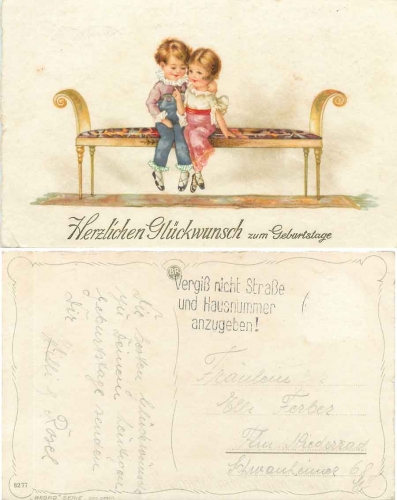 Herzlichen Glückwunsch zum Geburtstage
Vergiß nicht Straße
und Hausnummer
anzugeben!
Die besten Glückwünsche
Geburtstage senden
Dir
Willi & Rosel
Fräulein
Elli Ferber
Ffm Niederrad
Schwanheimer